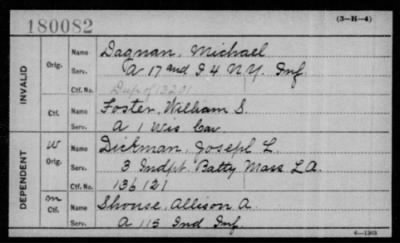 180082
(3-H-4)
INVALID
Orig.
Name Dagnan, Michael
Serv. A 17 and I 4 N.Y. Inf
Ctf. No. Dup of 13201
Ctf.
Name Foster, William S.
Serv. A 1 Wis Cav
DEPENDENT
W Orig.
Name Dickman, Joseph L.
Serv. 3 Indpt. Batty Mass L.A.
Ctf. No. 136121
Ctf.
Name Shouse, Allison A.
Serv. A 115 Ind Inf.